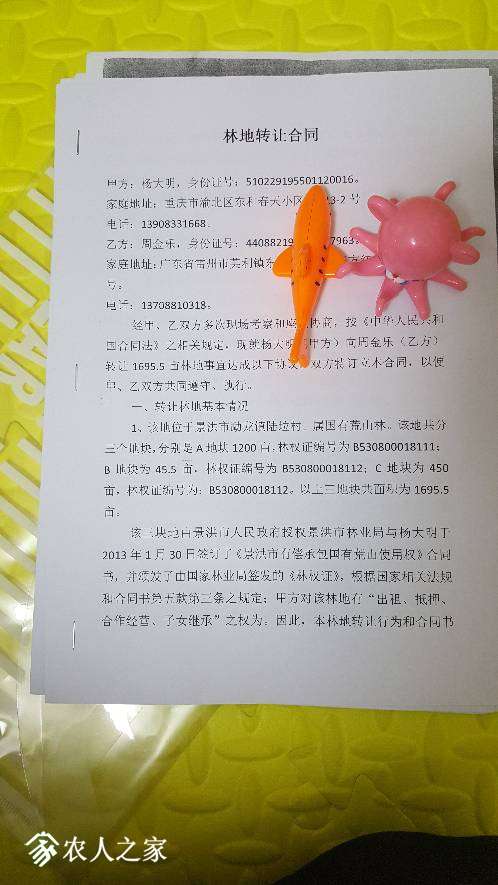 林地转让合同
甲方：杨大明，身份证号：510229195501120016。
家庭地址：重庆市渝北区东和春天小区 3-2号
电话：13908331668。
乙方：周金乐，身份证号：44088219 7963
家庭地址：广东省雷州市英利镇东
号。
电话：13708810318。
经甲、乙双方多次现场考察和 协商，按《中华人民共和
国合同法》之相关规定，现就杨大明（甲方）向周金乐（乙方）
转让1695.5亩林地事宜达成以下协议 双方特订立本合同，以便
甲、乙双方共同遵守、执行。
一、转让林地基本情况
1、该地位于景洪市勐龙镇陆拉村，属国有荒山林。该地共分
三个地块，分别是A地块1200亩，林权证编号为B530800018111；
B地块为45.5亩，林权证编号为B530800018112；C地块为450
亩，林权证编号为：B530800018112。以上三地块共面积为1695.5
亩。
该三块地由景洪市人民政府授权景洪市林业局与杨大明于
2013年1月30日签订了《景洪市有偿承包国有荒山使用权》合同
书，并颁发了由国家林业局签发的《林权证》，根据国家相关法规
和合同书第五款第三条之规定；甲方对该林地有“出租、抵押、
合作经营、子女继承”之权为。因此，本林地转让行为和合同书
农人之家